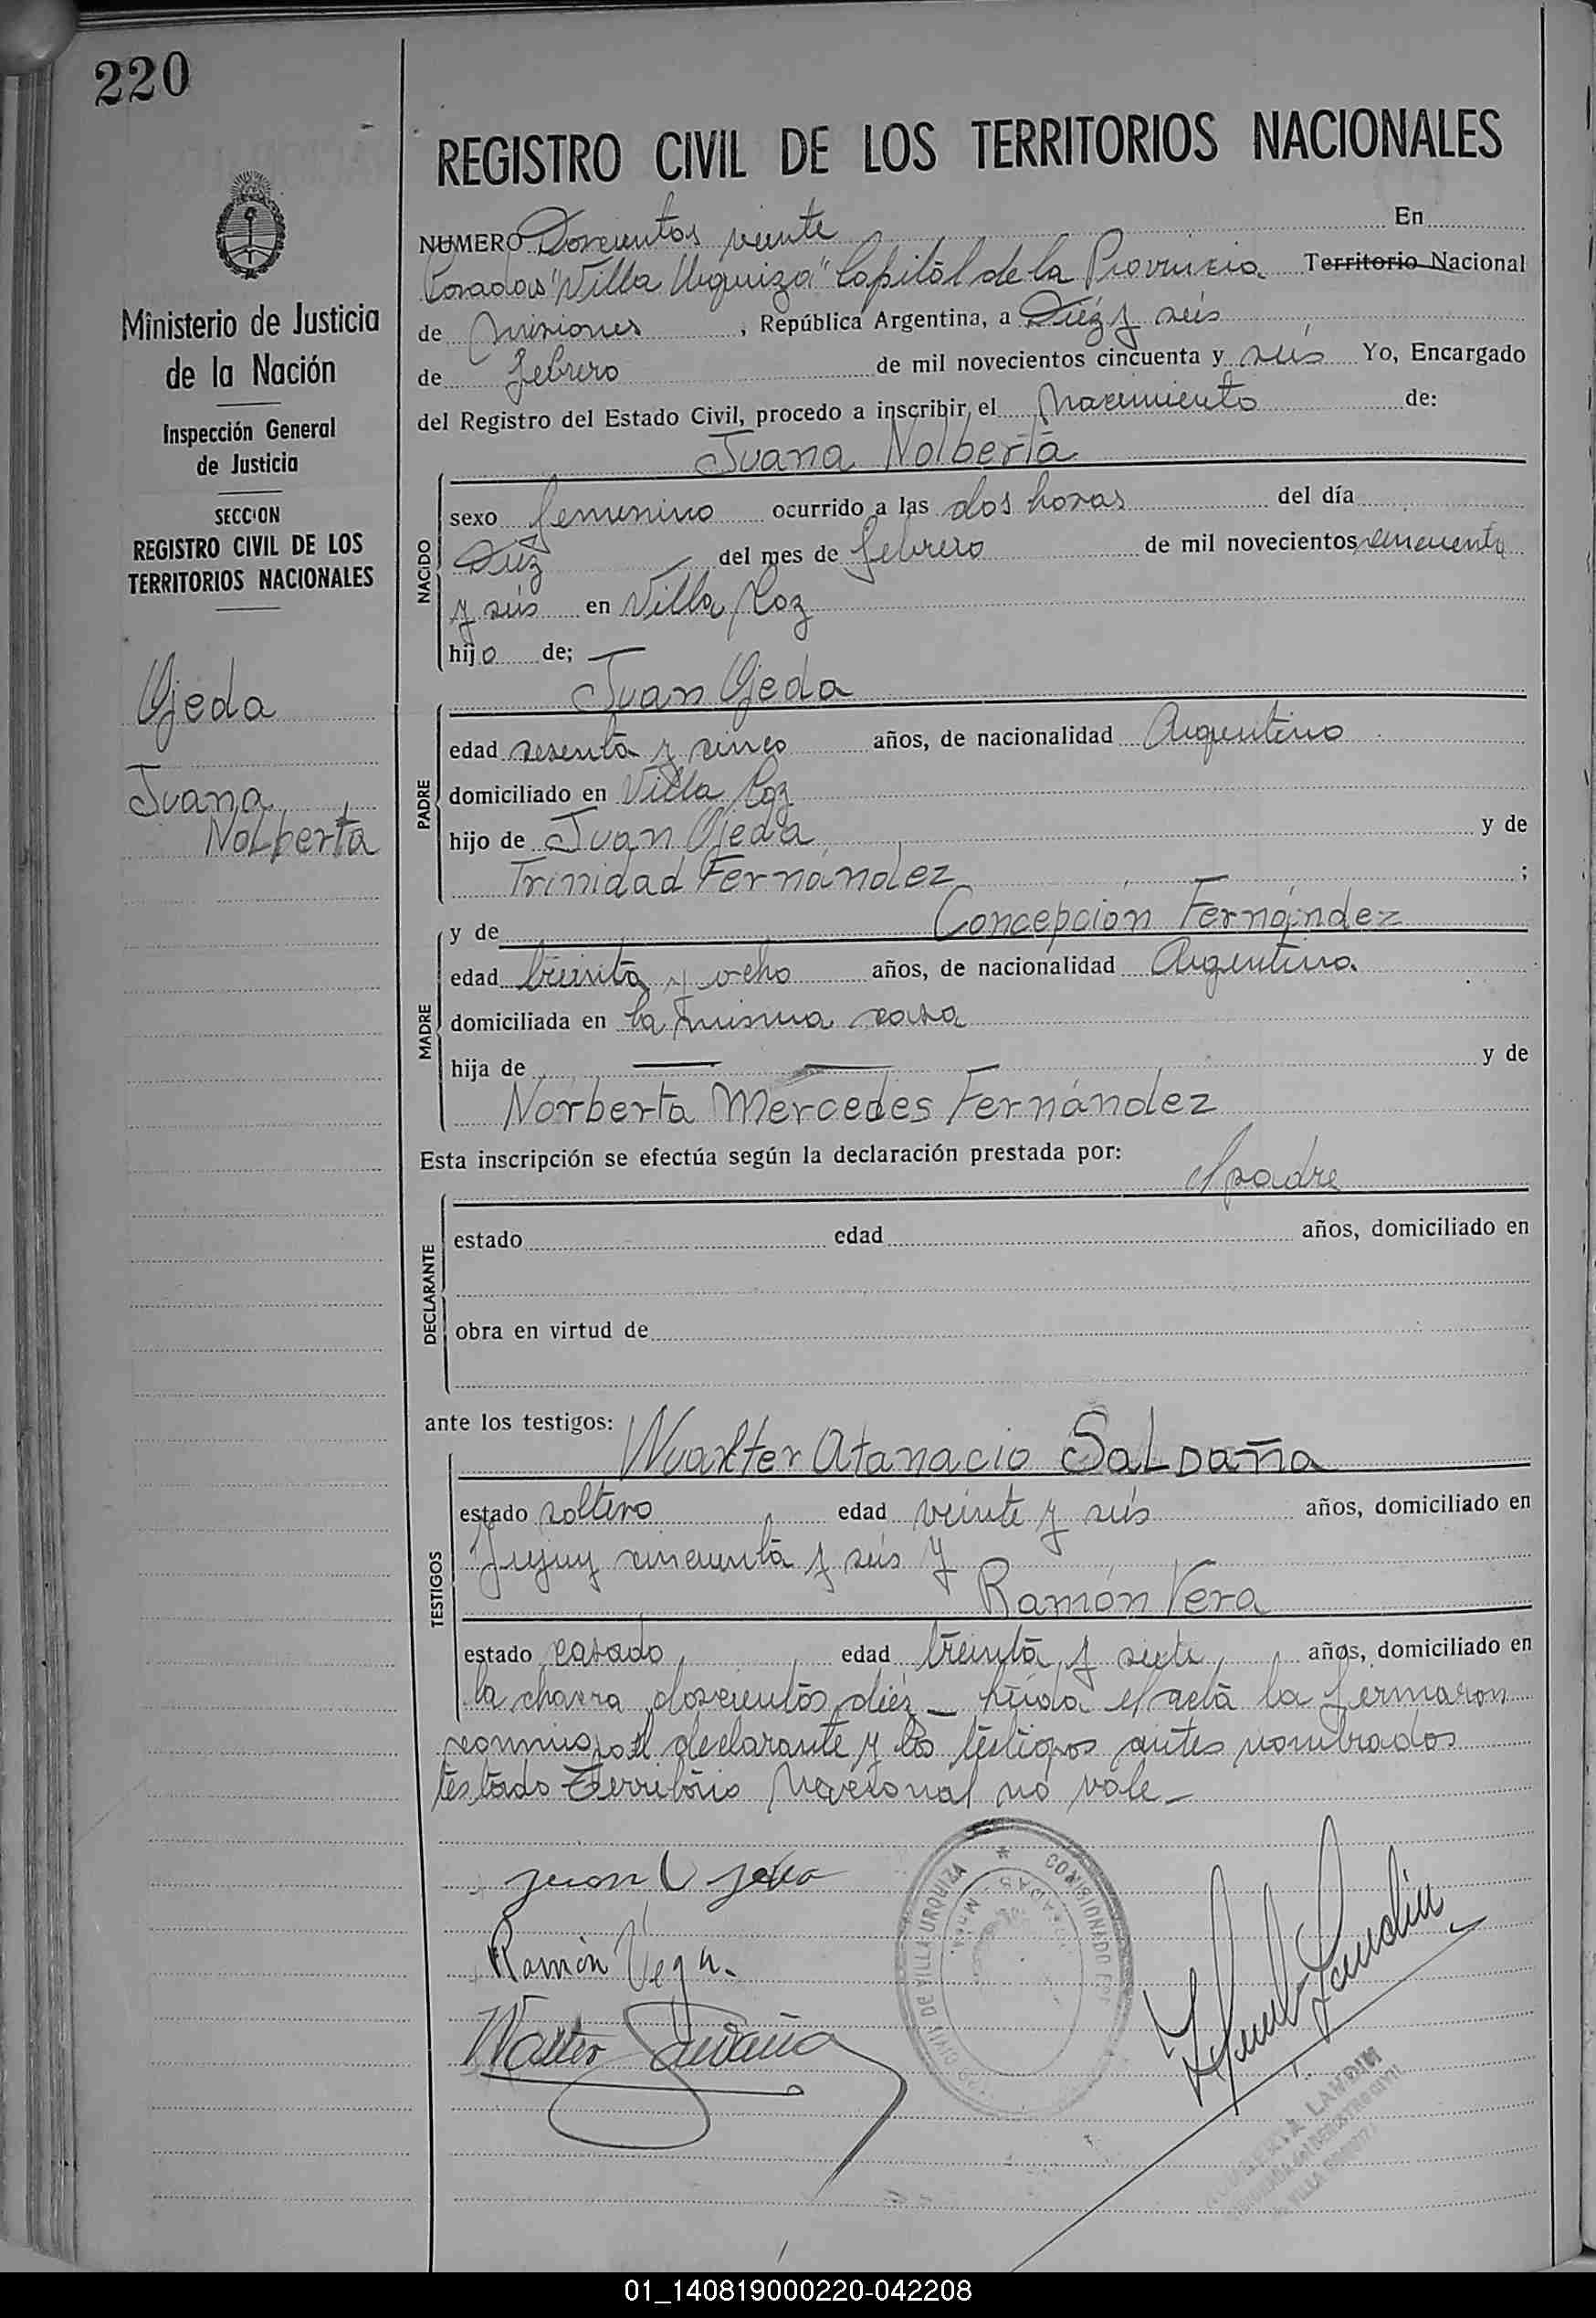 220
REGISTRO CIVIL DE LOS TERRITORIOS NACIONALES
Ministerio de Justicia
de la Nación
Inspección General
de Justicia
SECCION
REGISTRO CIVIL DE LOS
TERRITORIOS NACIONALES
Ojeda
Juana
Nolberta
NUMERO Doscientos veinte En
Posadas "Villa Urquiza" Capitál de la Provincia Territorio Nacional
de Misiones, República Argentina, a Diéz y seis
de febrero de mil novecientos cincuenta y seis Yo, Encargado
del Registro del Estado Civil, procedo a inscribir el Nacimiento de:
Juana Nolberta
NACIDO
sexo femenino ocurrido a las dos horas del día
Diéz del mes de febrero de mil novecientos cincuenta
y seis en Villa Poz
hijo de;
Juan Ojeda
PADRE
edad sesenta y cinco años, de nacionalidad Argentino
domiciliado en Villa Poz
hijo de Juan Ojeda y de
Trinidad Fernández ;
MADRE
y de Concepción Fernández
edad treinta y ocho años, de nacionalidad Argentina.
domiciliada en la misma casa
hija de y de
Norberta Mercedes Fernández
Esta inscripción se efectúa según la declaración prestada por:
el padre
DECLARANTE
estado edad años, domiciliado en
obra en virtud de
ante los testigos:
Wualter Atanacio SaLDaña
TESTIGOS
estado soltero edad veinte y seis años, domiciliado en
Jujuy cincuenta y seis y
Ramón Vera
estado casado edad treinta y siete años, domiciliado en
la chacra doscientos diéz — leida el acta la fermaron
conmigo el declarante y los testigos antes nombrados
testado Territorio Nacional no vale —
Juan Ojeda
Ramón Vega.
Walter Saldaña
CIVIL DE VILLA URQUIZA
COMISIONADO
POSADAS - Mnes.
LANDIN
REGISTRO CIVIL
VILLA URQUIZA
01_140819000220-042208